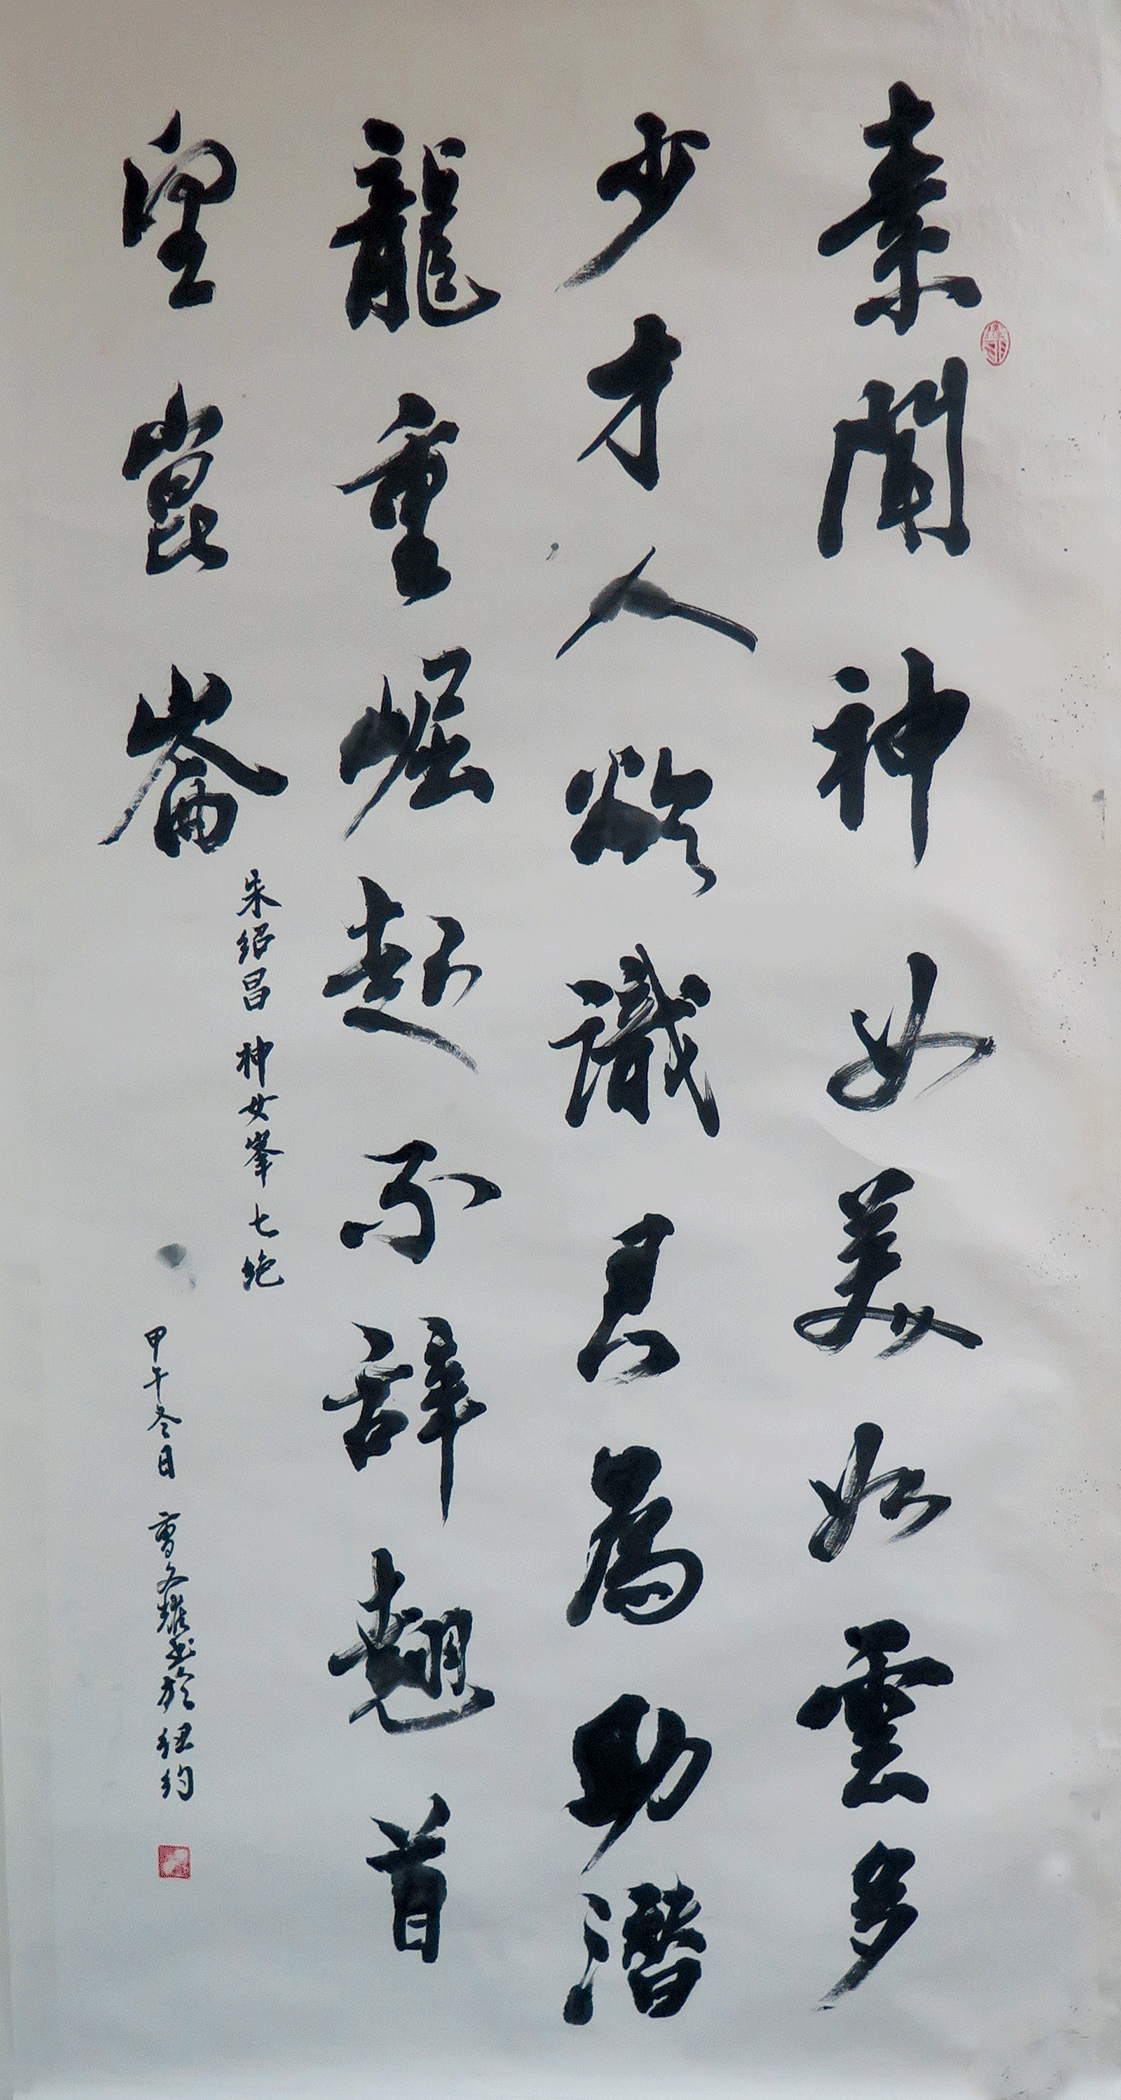 素聞神女美如雲多
少才人欲識君為助潛
龍重崛起不辭翹首
望崑崙
朱紹昌 神女峯 七絶
甲午冬日 曹文耀書於纽约